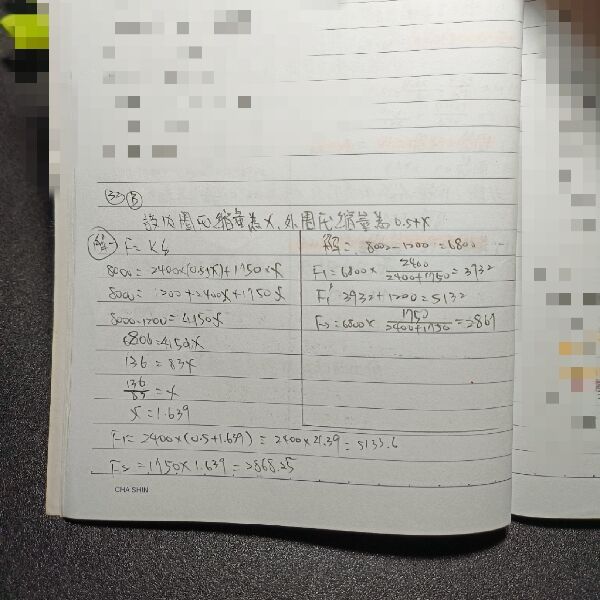 33 B
設內圈壓縮量為x，外圈壓縮量為0.5+x
解一 F=Kδ
8000=2400×(0.5+x)+1750×x
8000=1200+2400x+1750x
8000-1200=4150x
6800=4150x
136=83x
136/83=x
x=1.639
F1=2400×(0.5+1.639)=2400×21.39=5133.6
F2=1750×1.639=2868.25
解二 8000-1200=6800
F1=6800×2400/(2400+1750)=3932
F1' 3932+1200=5132
F2=6800×1750/(2400+1750)=2867
CHA SHIN